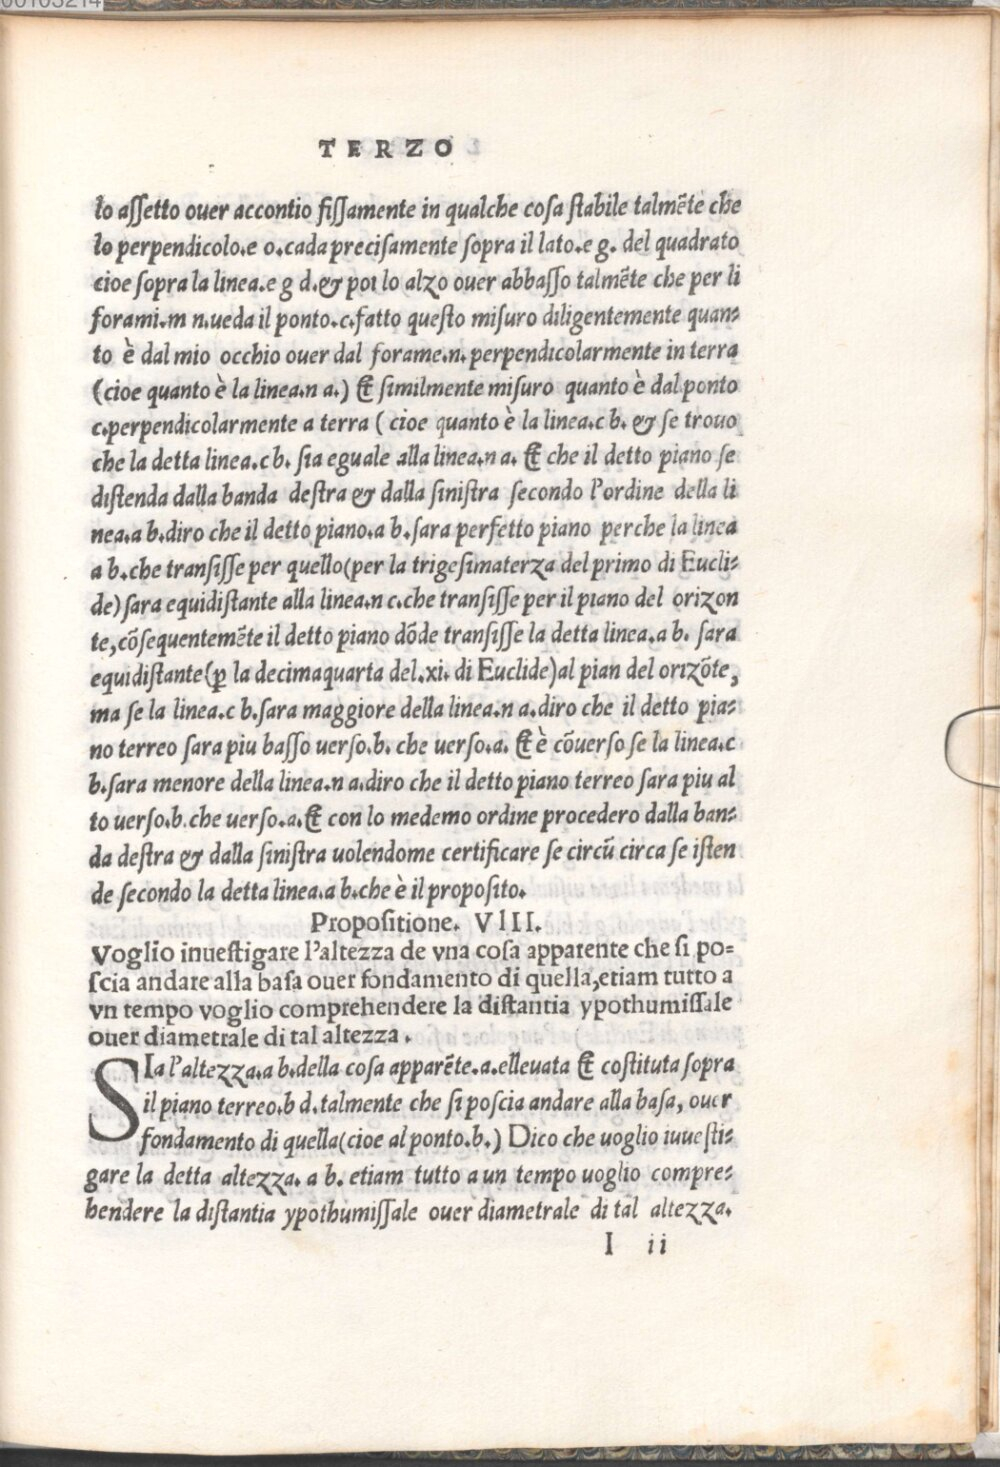 00105214
TERZO
lo aſſetto ouer accontio fiſſamente in qualche coſa ſtabile talmẽte che
lo perpendicolo.e o.cada preciſamente ſopra il lato.e g. del quadrato
cioe ſopra la linea.e g d.& poi lo alzo ouer abbaſſo talmẽte che per li
forami.m n.ueda il ponto.c.fatto queſto miſuro diligentemente quan-
to è dal mio occhio ouer dal forame.n.perpendicolarmente in terra
(cioe quanto è la linea.n a.) Et ſimilmente miſuro quanto è dal ponto
c.perpendicolarmente a terra ( cioe quanto è la linea.c b. & ſe trouo
che la detta linea.c b. ſia eguale alla linea.n a. Et che il detto piano ſe
diſtenda dalla banda deſtra & dalla ſiniſtra ſecondo l'ordine della li
nea.a b.diro che il detto piano.a b.ſara perfetto piano perche la linea
a b.che tranſiſſe per quello(per la trigeſimaterza del primo di Eucli-
de)ſara equidiſtante alla linea.n c.che tranſiſſe per il piano del orizon
te,cõſequentemẽte il detto piano dõde tranſiſſe la detta linea.a b. ſara
equidiſtante(ꝑ la decimaquarta del.xi. di Euclide)al pian del orizõte,
ma ſe la linea.c b.ſara maggiore della linea.n a.diro che il detto pia-
no terreo ſara piu baſſo uerſo.b. che uerſo.a. Et è cõuerſo ſe la linea.c
b.ſara menore della linea.n a.diro che il detto piano terreo ſara piu al
to uerſo.b.che uerſo.a.Et con lo medemo ordine procedero dalla ban-
da deſtra & dalla ſiniſtra uolendome certificare ſe circũ circa ſe iſten
de ſecondo la detta linea.a b.che è il propoſito.
Propoſitione. VIII.
Voglio inueſtigare l'altezza de vna coſa apparente che ſi po=
ſcia andare alla baſa ouer fondamento di quella,etiam tutto a
vn tempo voglio comprehendere la diſtantia ypothumiſſale
ouer diametrale di tal altezza.
SIa l'altezza.a b.della coſa apparẽte.a.elleuata Et coſtituta ſopra
il piano terreo.b d.talmente che ſi poſcia andare alla baſa, ouer
fondamento di quella(cioe al ponto.b.) Dico che uoglio iuueſti-
gare la detta altezza. a b. etiam tutto a un tempo uoglio compre-
hendere la diſtantia ypothumiſſale ouer diametrale di tal altezza.
I ii